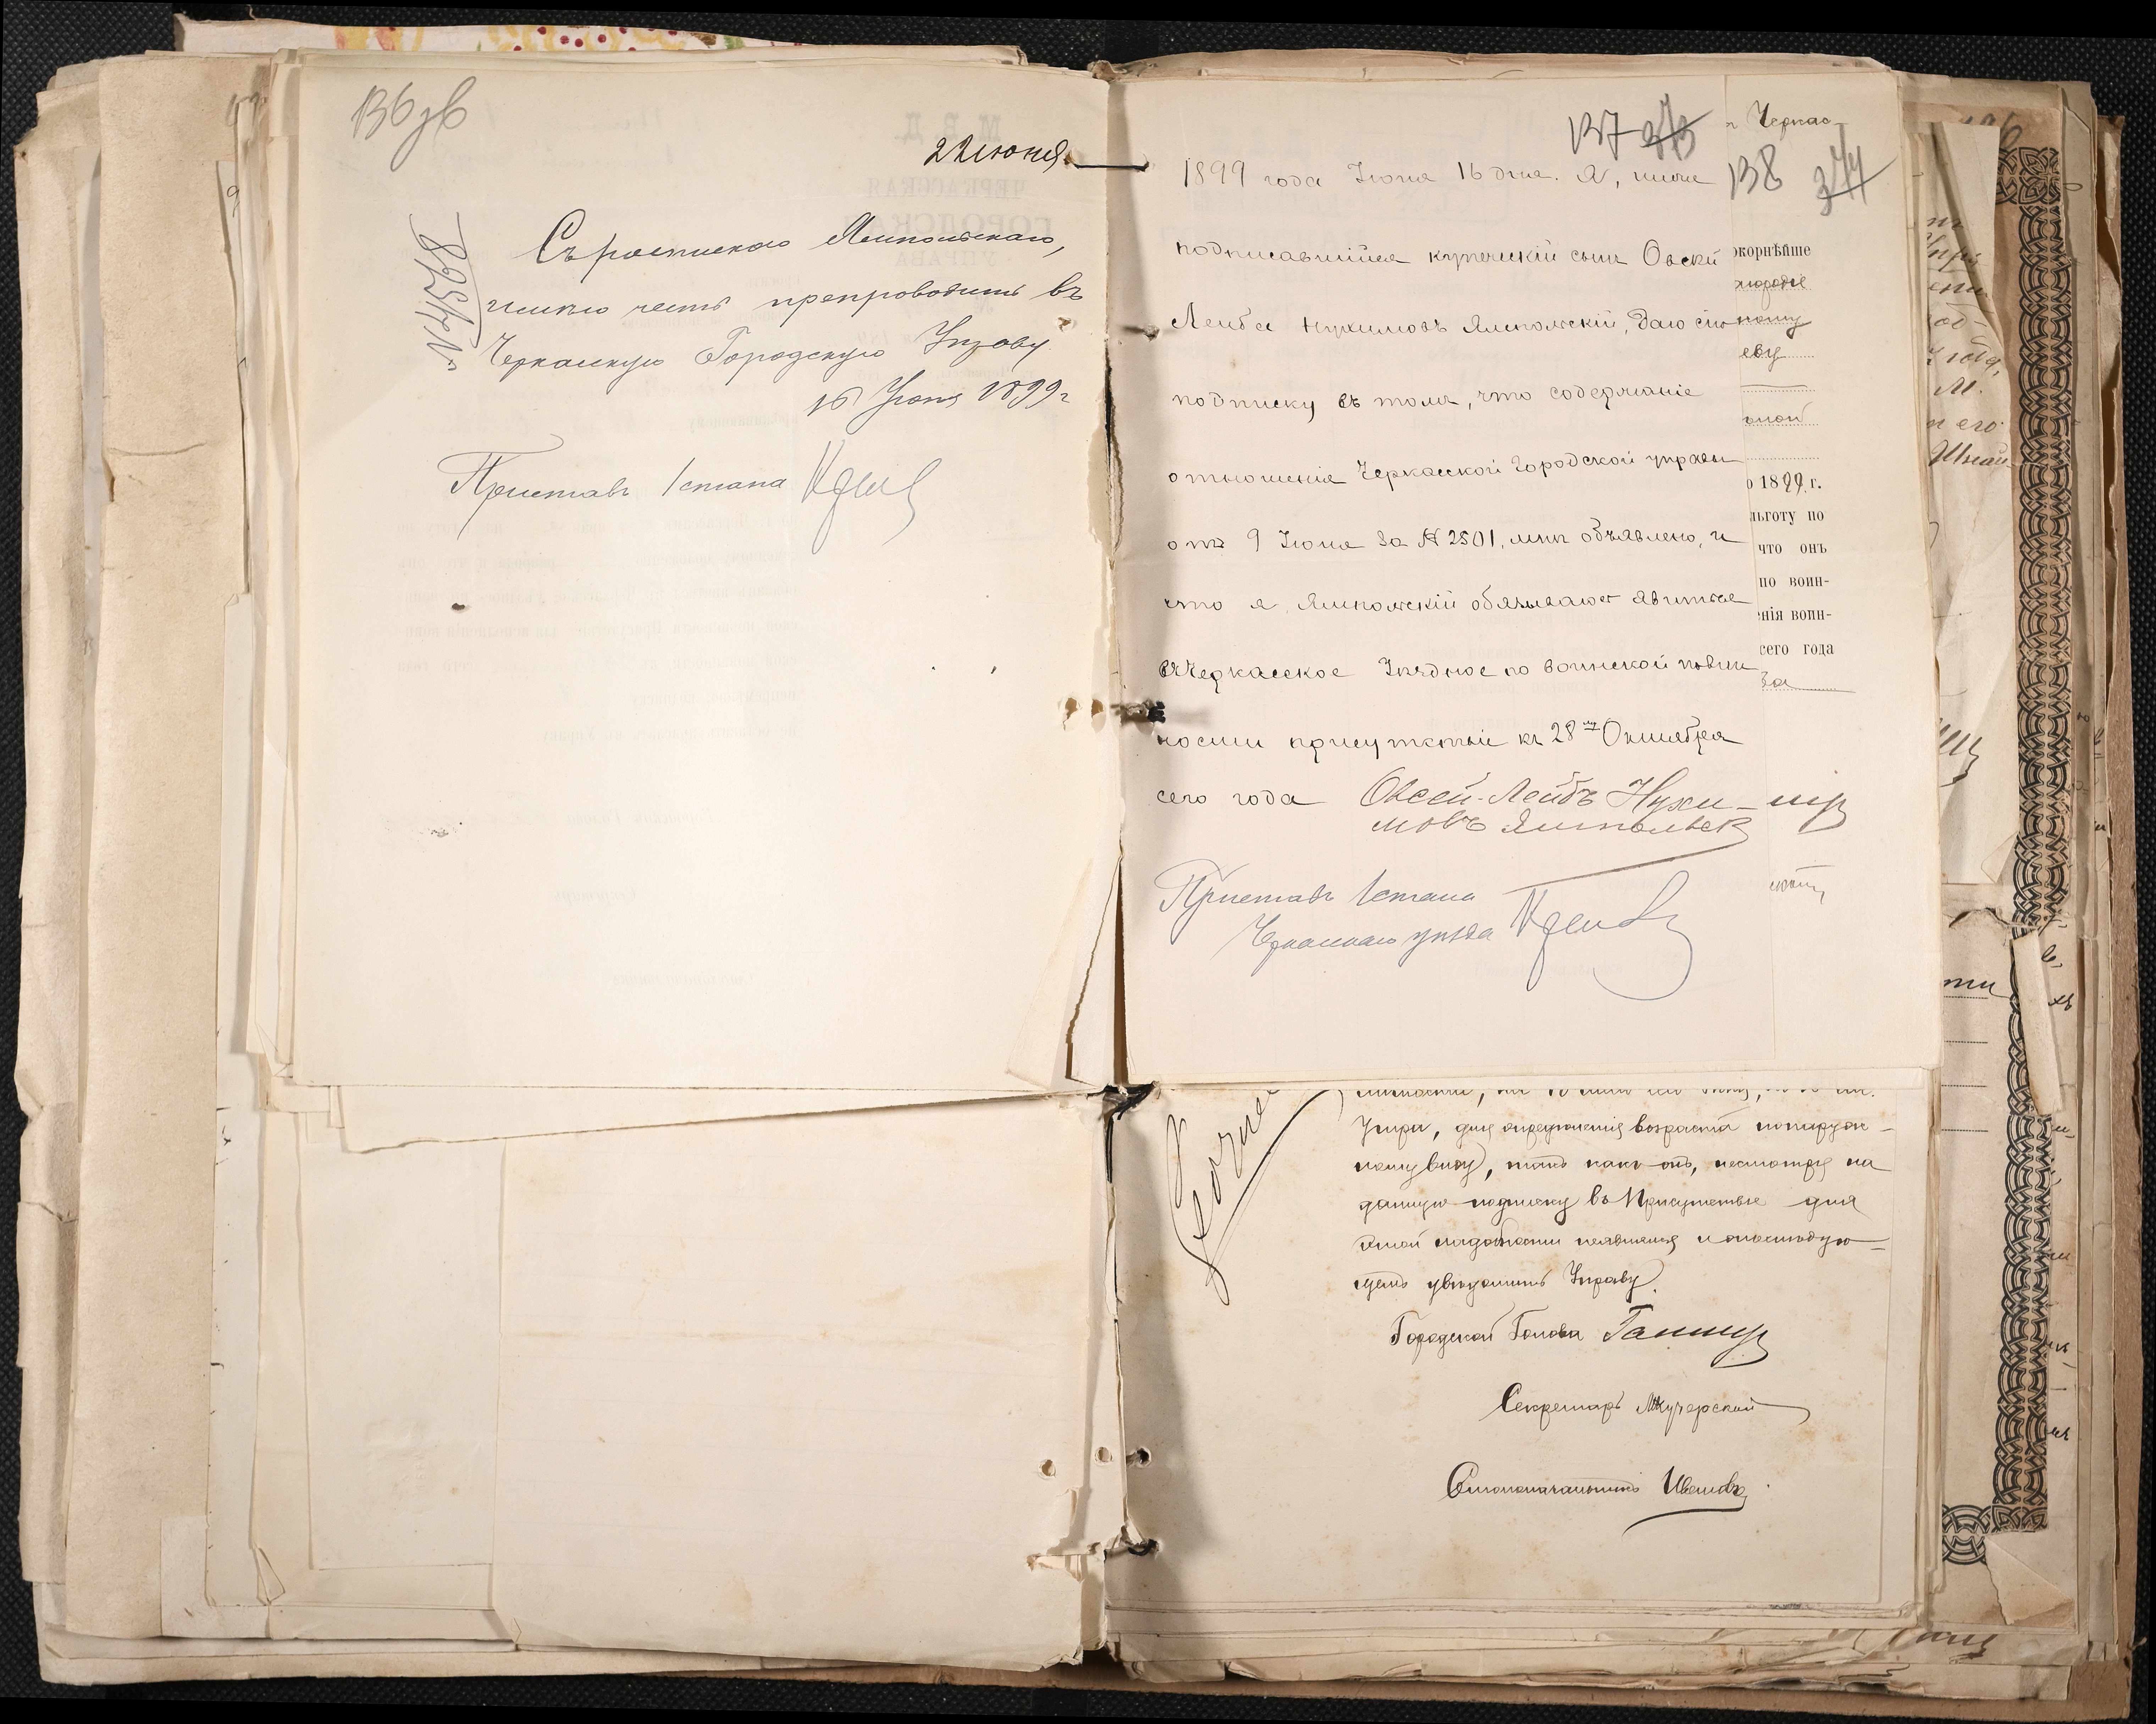 136 зв
22 июня
№ 4598
Съ роспискою Ямпольскаго,
имѣю честь препроводить въ
Черкасскую Городскую Управу
16 Іюня 1899 г
Приставъ 1 стана
137 373
1899 года Іюня 16 дня. Я, ниже
подписавшійся купеческій сынъ Овсей
Лейба Нухимовъ Ямпольскій, даю сію
подписку въ томъ, что содержаніе
отношенія Черкасской Городской управы
отъ 9 Іюня за № 2501, мнѣ объявлено, и
что я, Ямпольскій обязываюсь явиться
въ Черкасское Уѣздное по воинской повин
ности присутствіе къ 28му Октября
сего года Овсей-Лейбъ Нухи-
мовъ Ямпольск
Приставъ 1 стана
Черкасскаго уѣзда
Черкас-
138 374
окорнѣйше
ному
еву
ьной
о 1899 г.
льготу по
что онъ
по воин-
нія воин-
сего года
за
Управу, для опредѣленія возраста по наруж-
ному виду, такъ какъ онъ, несмотря на
данную подписку въ Присутствіе для
этой надобности неявился и о послѣдую-
щемъ увѣдомить Управу.
Городской Голова
Секретарь
Столоначальникъ Ивановъ